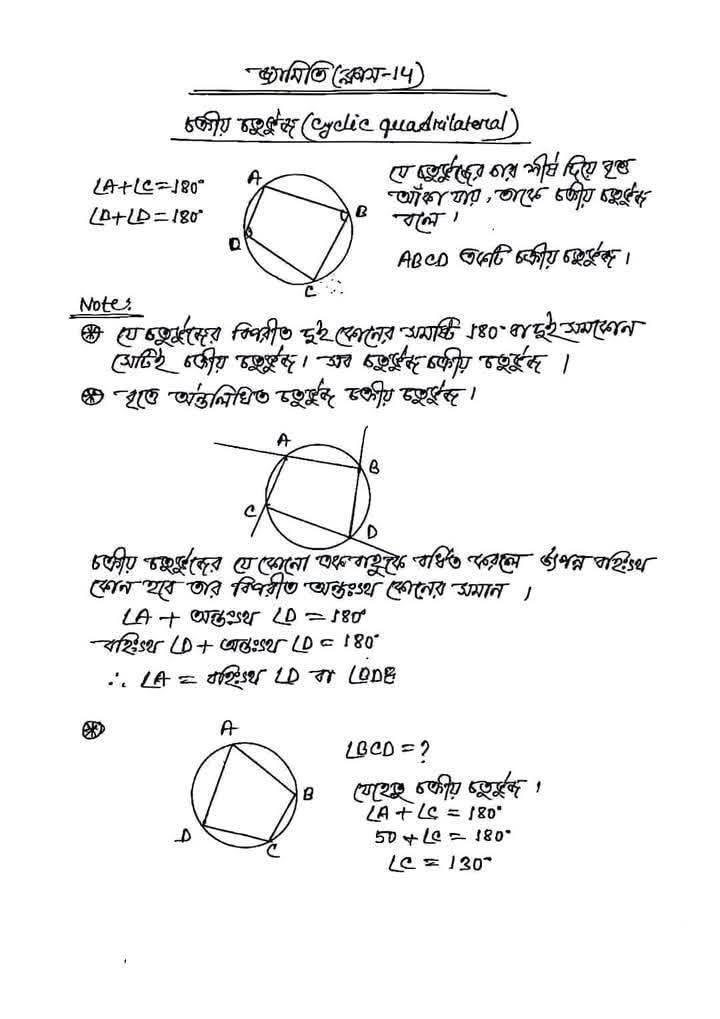 জ্যামিতি (ক্লাস-14)
চক্রীয় চতুর্ভুজ (cyclic quadrilateral)
∠A+∠C=180°
∠D+∠D=180°
A
B
D
C
যে চতুর্ভুজের চার শীর্ষ দিয়ে বৃত্ত
আঁকা যায়, তাকে চক্রীয় চতুর্ভুজ
বলে।
ABCD একটি চক্রীয় চতুর্ভুজ।
Note:
যে চতুর্ভুজের বিপরীত দুই কোনের সমষ্টি 180° বা দুই সমকোন
সেটিই চক্রীয় চতুর্ভুজ। সব চতুর্ভুজ চক্রীয় চতুর্ভুজ।
বৃত্তে অন্তর্লিখিত চতুর্ভুজ চক্রীয় চতুর্ভুজ।
A
B
C
D
চক্রীয় চতুর্ভুজের যে কোনো একবাহুকে বর্ধিত করলে উৎপন্ন বহিঃস্থ
কোন হবে তার বিপরীত অন্তঃস্থ কোনের সমান।
∠A + অন্তঃস্থ ∠D = 180°
বহিঃস্থ ∠D + অন্তঃস্থ ∠D = 180°
∴ ∠A = বহিঃস্থ ∠D বা
A
B
D
C
∠BCD = ?
যেহেতু চক্রীয় চতুর্ভুজ।
∠A + ∠C = 180°
50 + ∠C = 180°
∠C = 130°